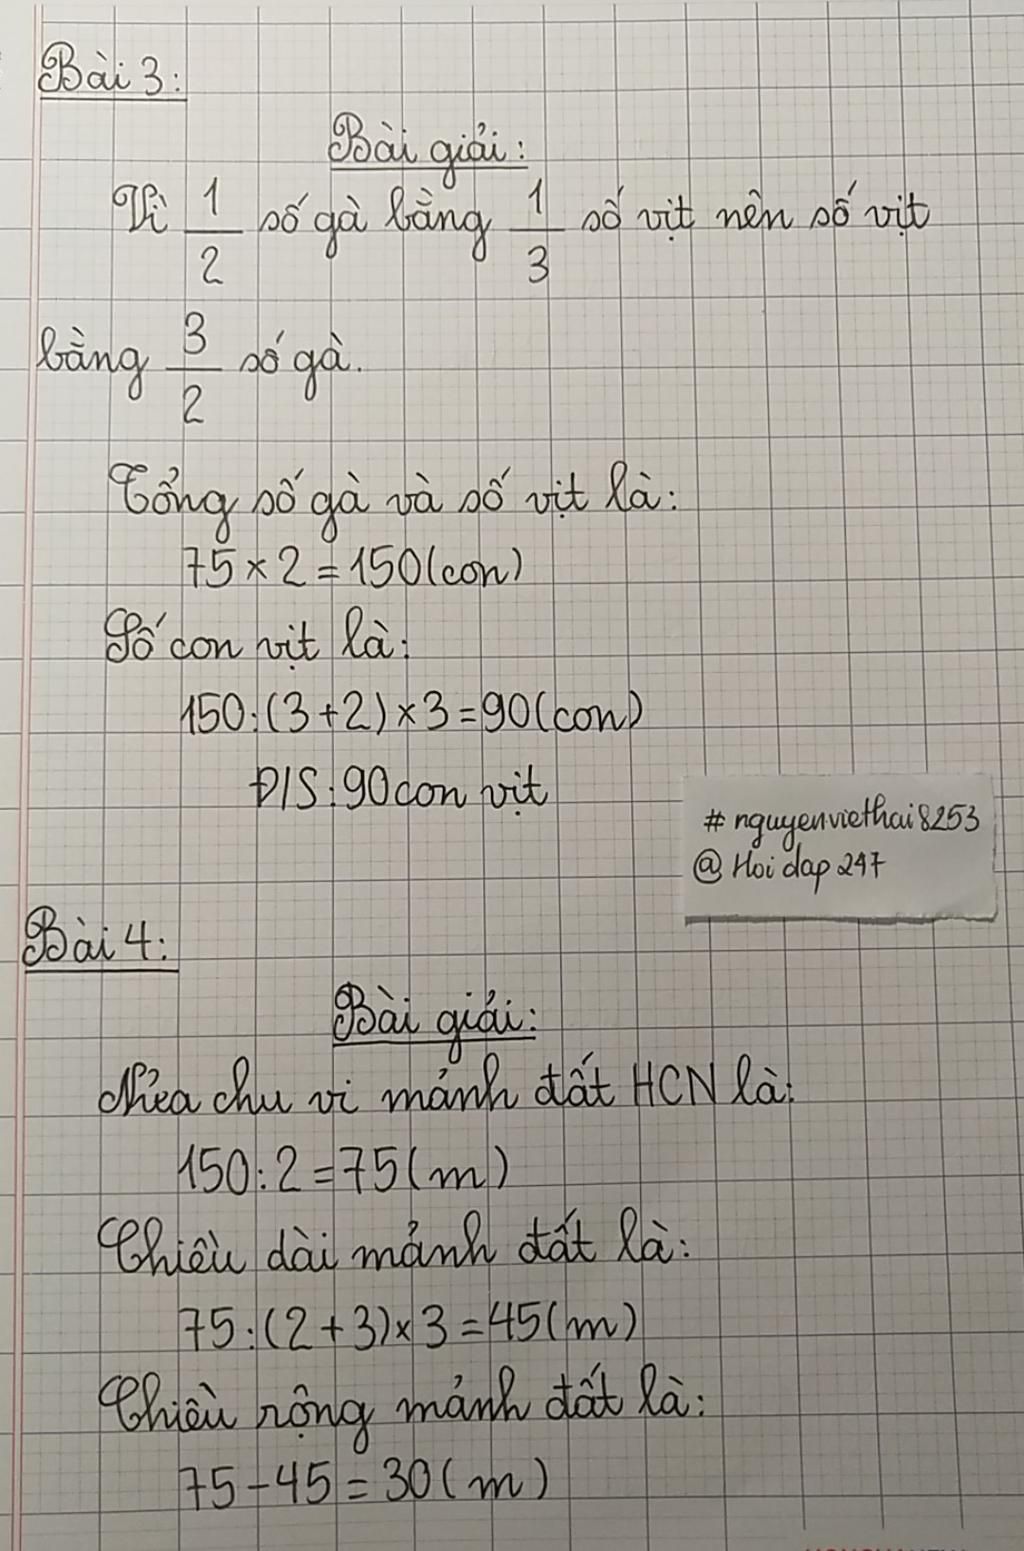 Bài 3:
Bài giải:
Vì 1/2 số gà bằng 1/3 số vịt nên số vịt
bằng 3/2 số gà.
Tổng số gà và số vịt là:
75 × 2 = 150 (con)
Số con vịt là:
150 : (3 + 2) × 3 = 90 (con)
Đ/S : 90 con vịt
# nguyenviethai8253
@ Hoi dap 247
Bài 4:
Bài giải:
Nửa chu vi mảnh đất HCN là:
150 : 2 = 75 (m)
Chiều dài mảnh đất là:
75 : (2 + 3) × 3 = 45 (m)
Chiều rộng mảnh đất là:
75 - 45 = 30 (m)